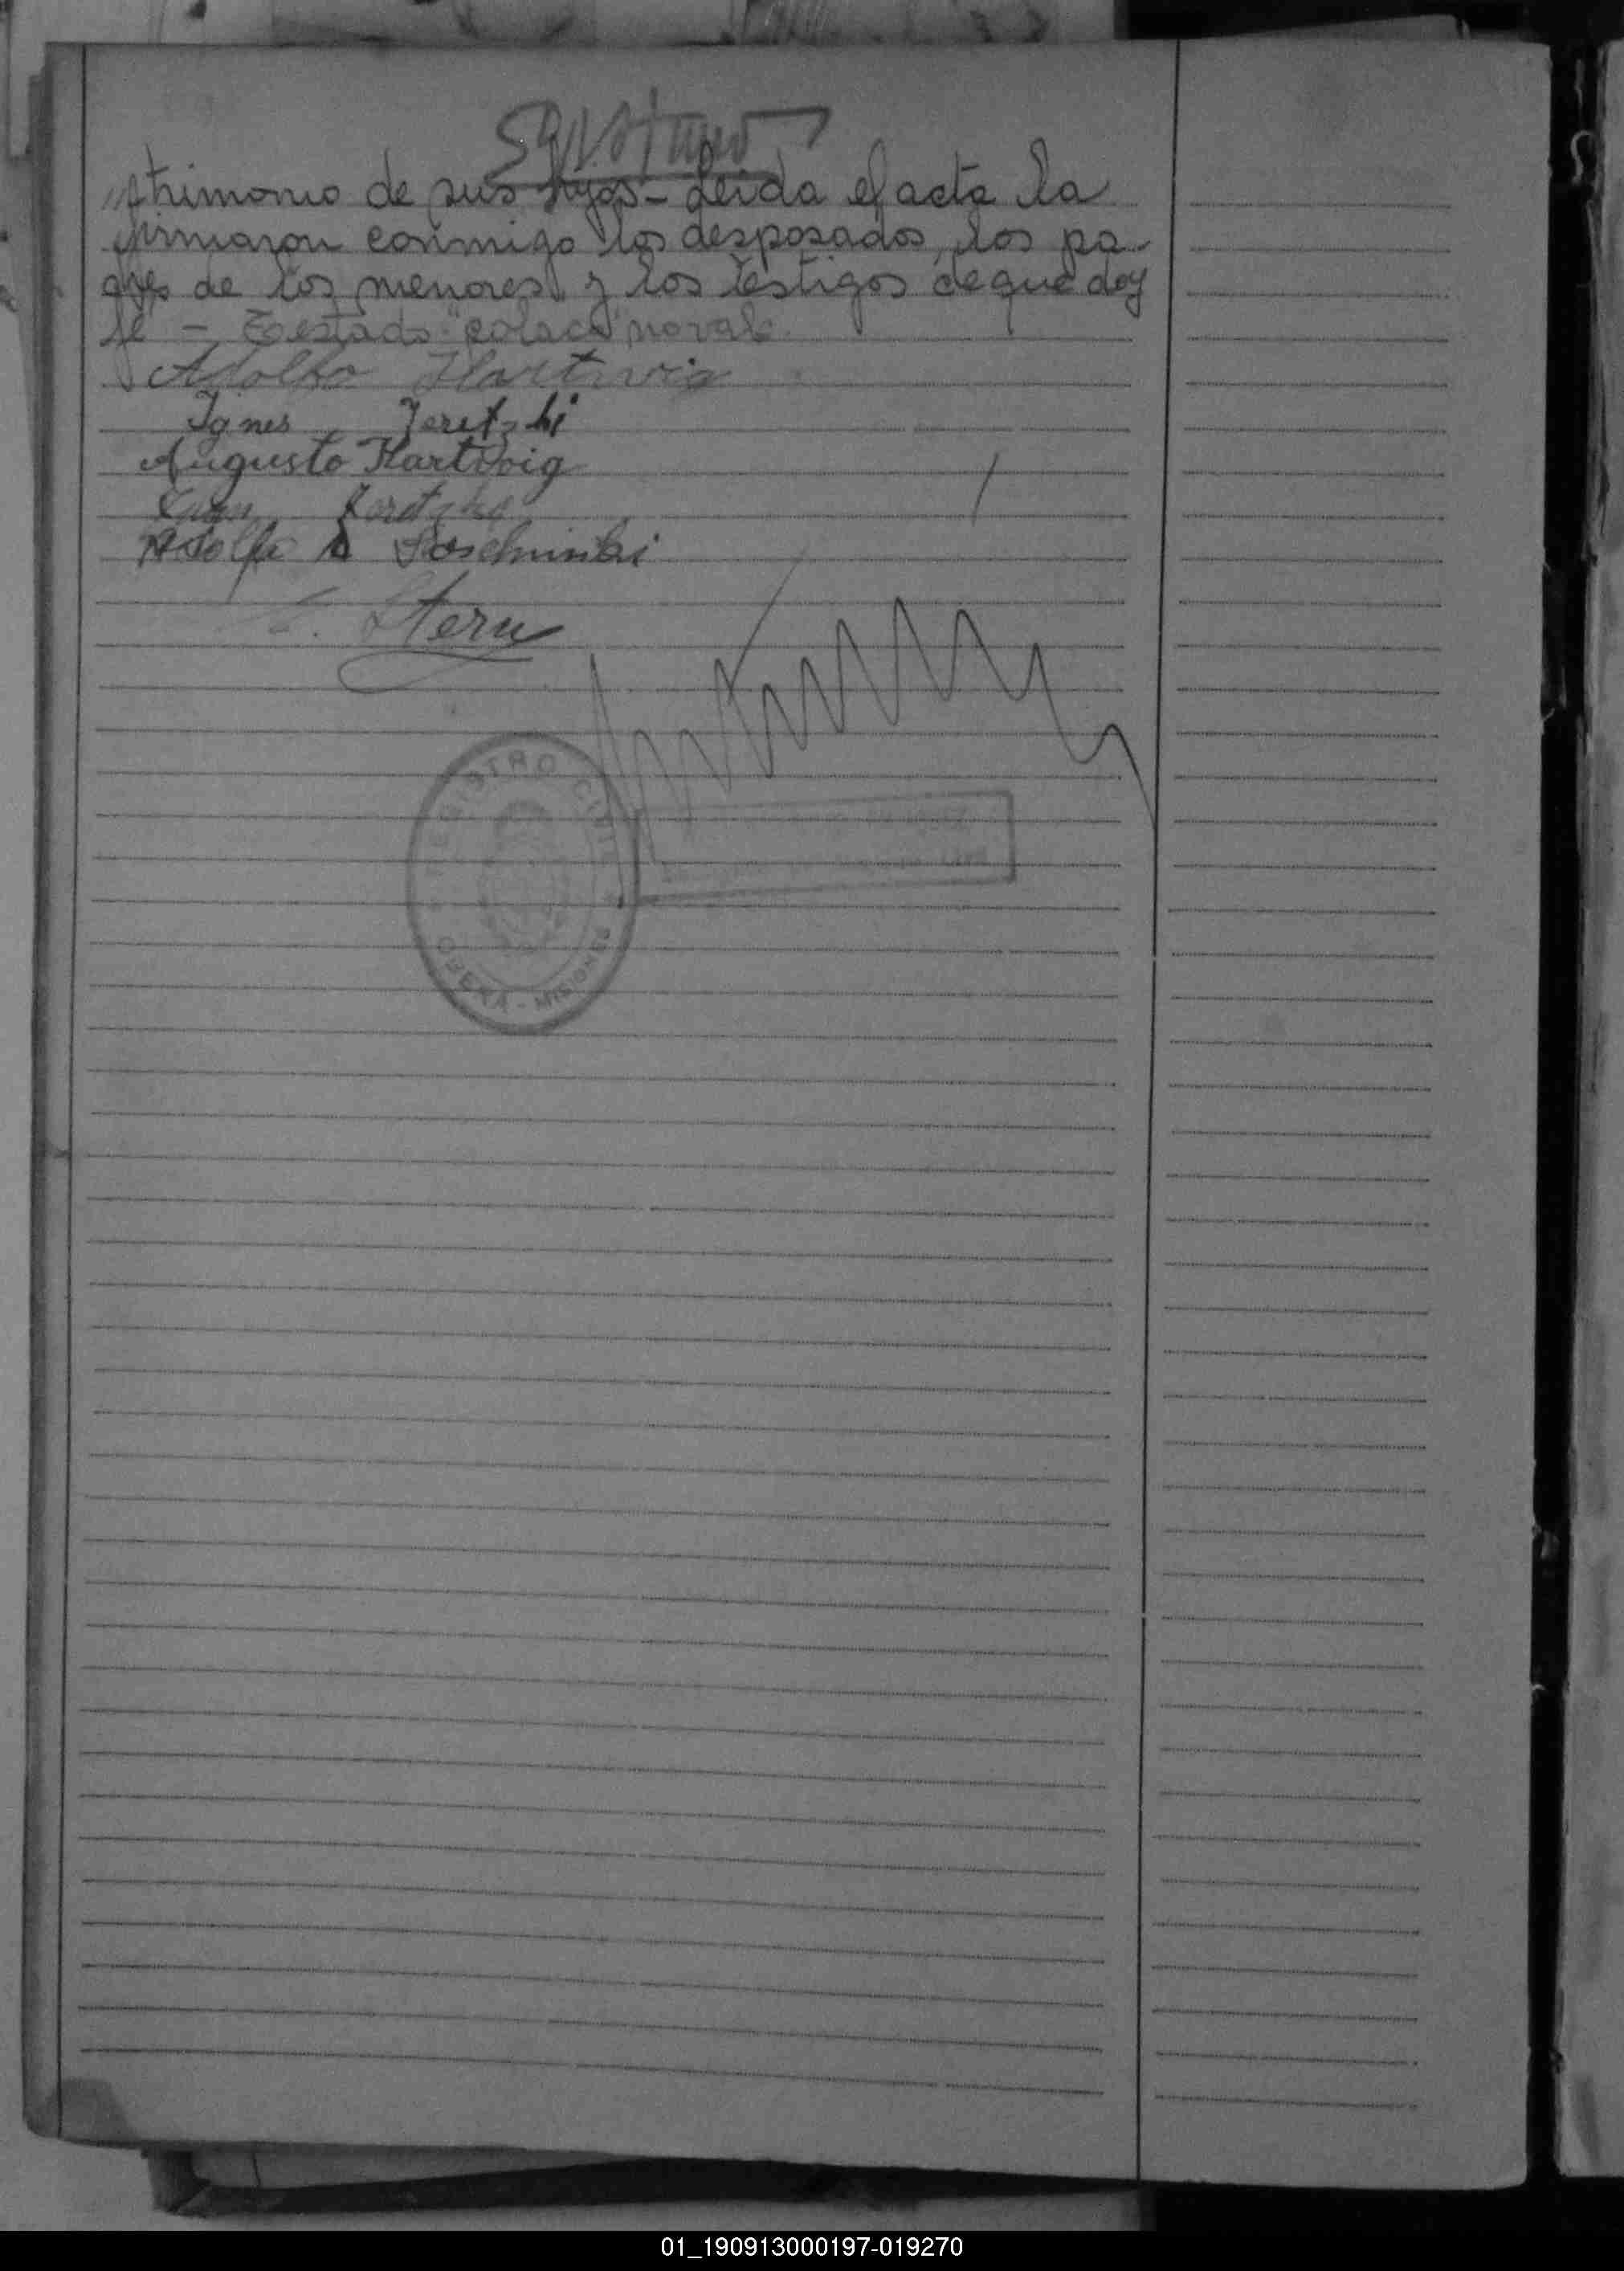 //trimonio de sus hijos - Leida el acta la
firmaron conmigo los desposados, los pa-
dres de los menores y los testigos de que doy
fé - Testado "polaca" no vale.
Adolfo Hartwig
Ignes Jeretzki
Augusto Hartwig
Adolfo
Stern
REGISTRO CIVIL
OBERA - MISIONES
01_190913000197-019270